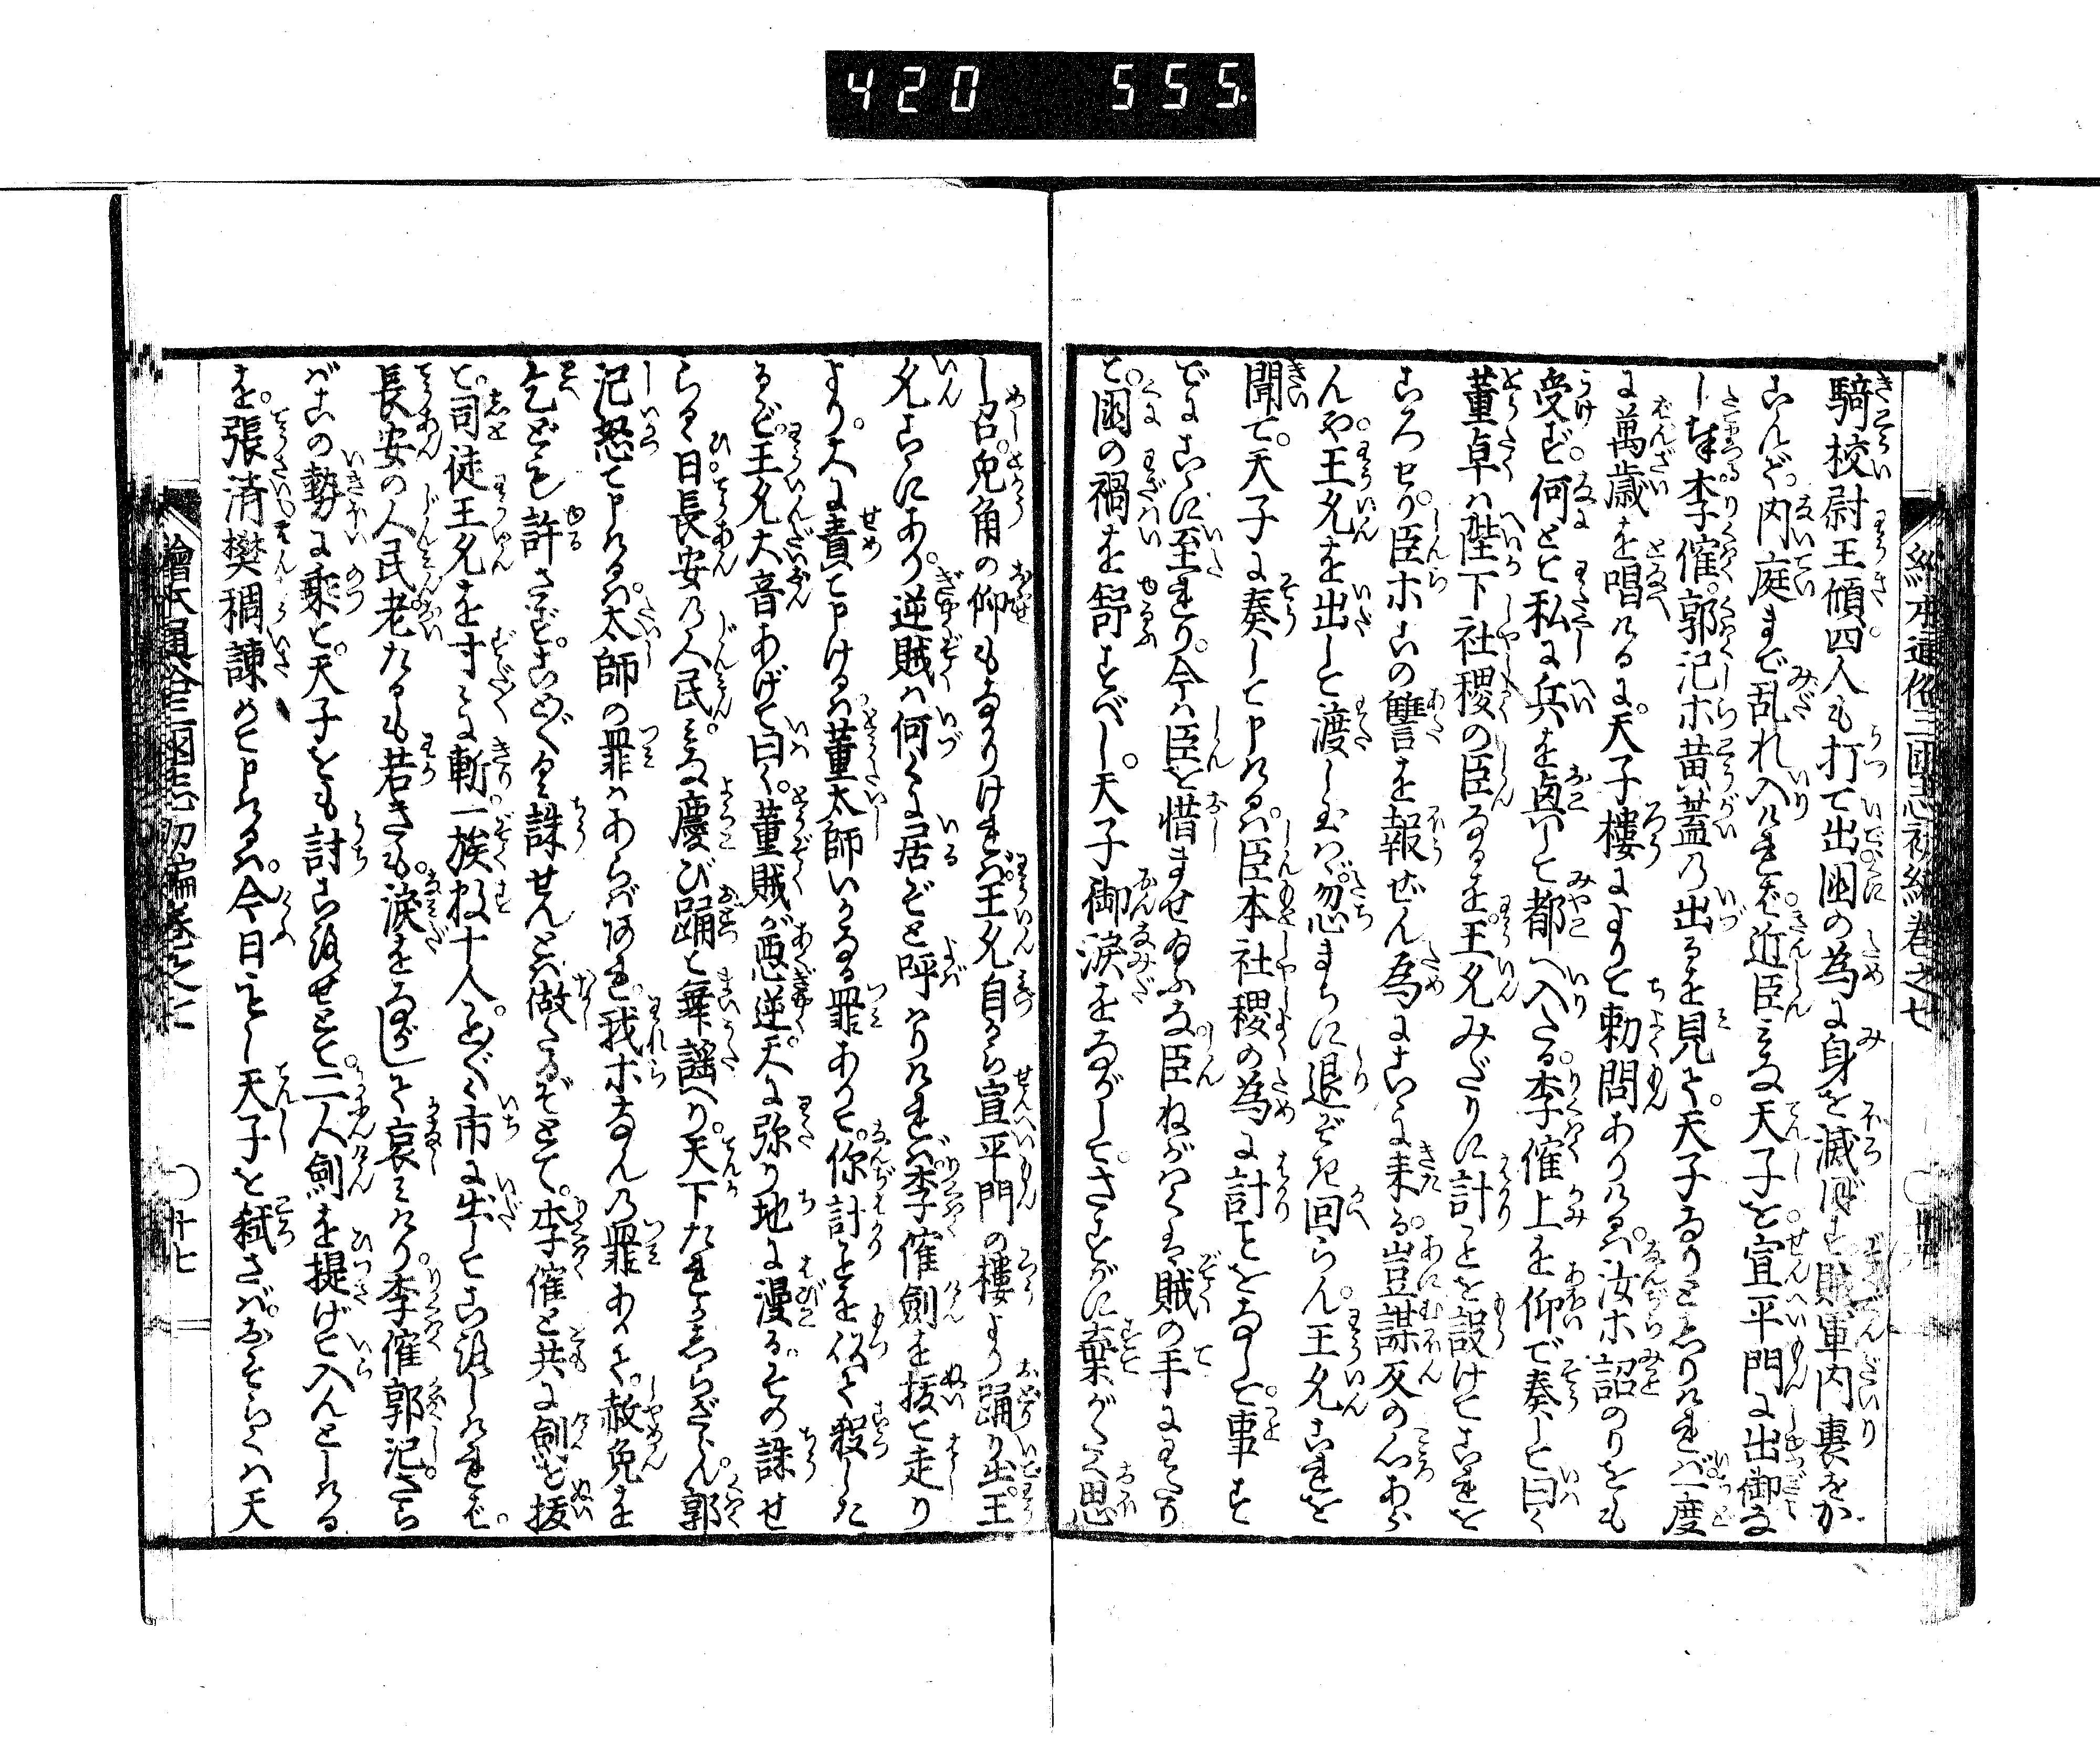 420 555
絵本通俗三國志初編巻之七
騎校尉王頎四人も打て出国の為に身を滅ぼす賊軍内裏をか
こんで内庭まで乱れ入ければ近臣みな天子を宣平門に出御な
し奉李傕郭汜ホ黄蓋の出るを見て天子なりとしりければ一度
に萬歳を唱ける に天子樓によりて勅問ありけるハ汝ホ詔のりをも
受ず何とて私に兵を興して都へ入たる李傕上を仰で奏して曰く
董卓ハ陛下社稷の臣なるを王允みだりに計ことを設けてこれを
ころせり臣ホこの讐を報ぜん為にこゝに来る豈謀反の心あら
んや王允を出して渡し玉ハゞ忽まちに退ぞき回らん王允これを
聞て天子に奏して申けるハ臣本社稷の為に計ことをなして事す
でにこゝに至れり今ハ臣を惜ませ給ふな臣ねがハくは賊の手にわたり
て国の禍を舒すべし天子御涙をながしてさすがに棄がたく思
し召兎角の仰もなかりければ王允自から宣平門の樓より踊り出王
允こゝにあり逆賊ハ何くに居ぞと呼ハりければ李傕劍を抜て走り
より大に責て申けるハ董太師いかなる罪ありて你計ことを以て殺した
るぞ王允大音あげて曰く董賊が悪逆天に弥り地に漫るその誅せ
らるゝ日長安の人民みな慶び踊て舞謡へり天下たれかしらざらん郭
汜怒て申けるハ太師の罪ハあらバあれ我ホなんの罪あつて赦免を
乞ども許さずことごとく誅せんとハ做たるぞとて李傕と共に劍を抜
て司徒王允を寸々に斬一族数十人ことごとく市に出してころしければ
長安の人民老たるも若きも涙をながして哀みけり李傕郭汜さら
バこの勢に乗て天子をも討ころせとて二人劍を提げて入んとしける
を張済樊稠諫めて申けるハ今日もし天子を弑さバおそらくハ天
繪本通俗三國志初編巻之七
十七